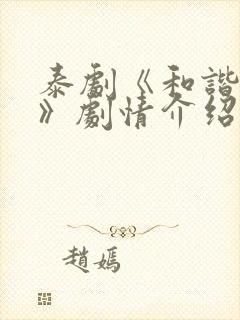 泰劇《和諧
》劇情介紹
趙嫣